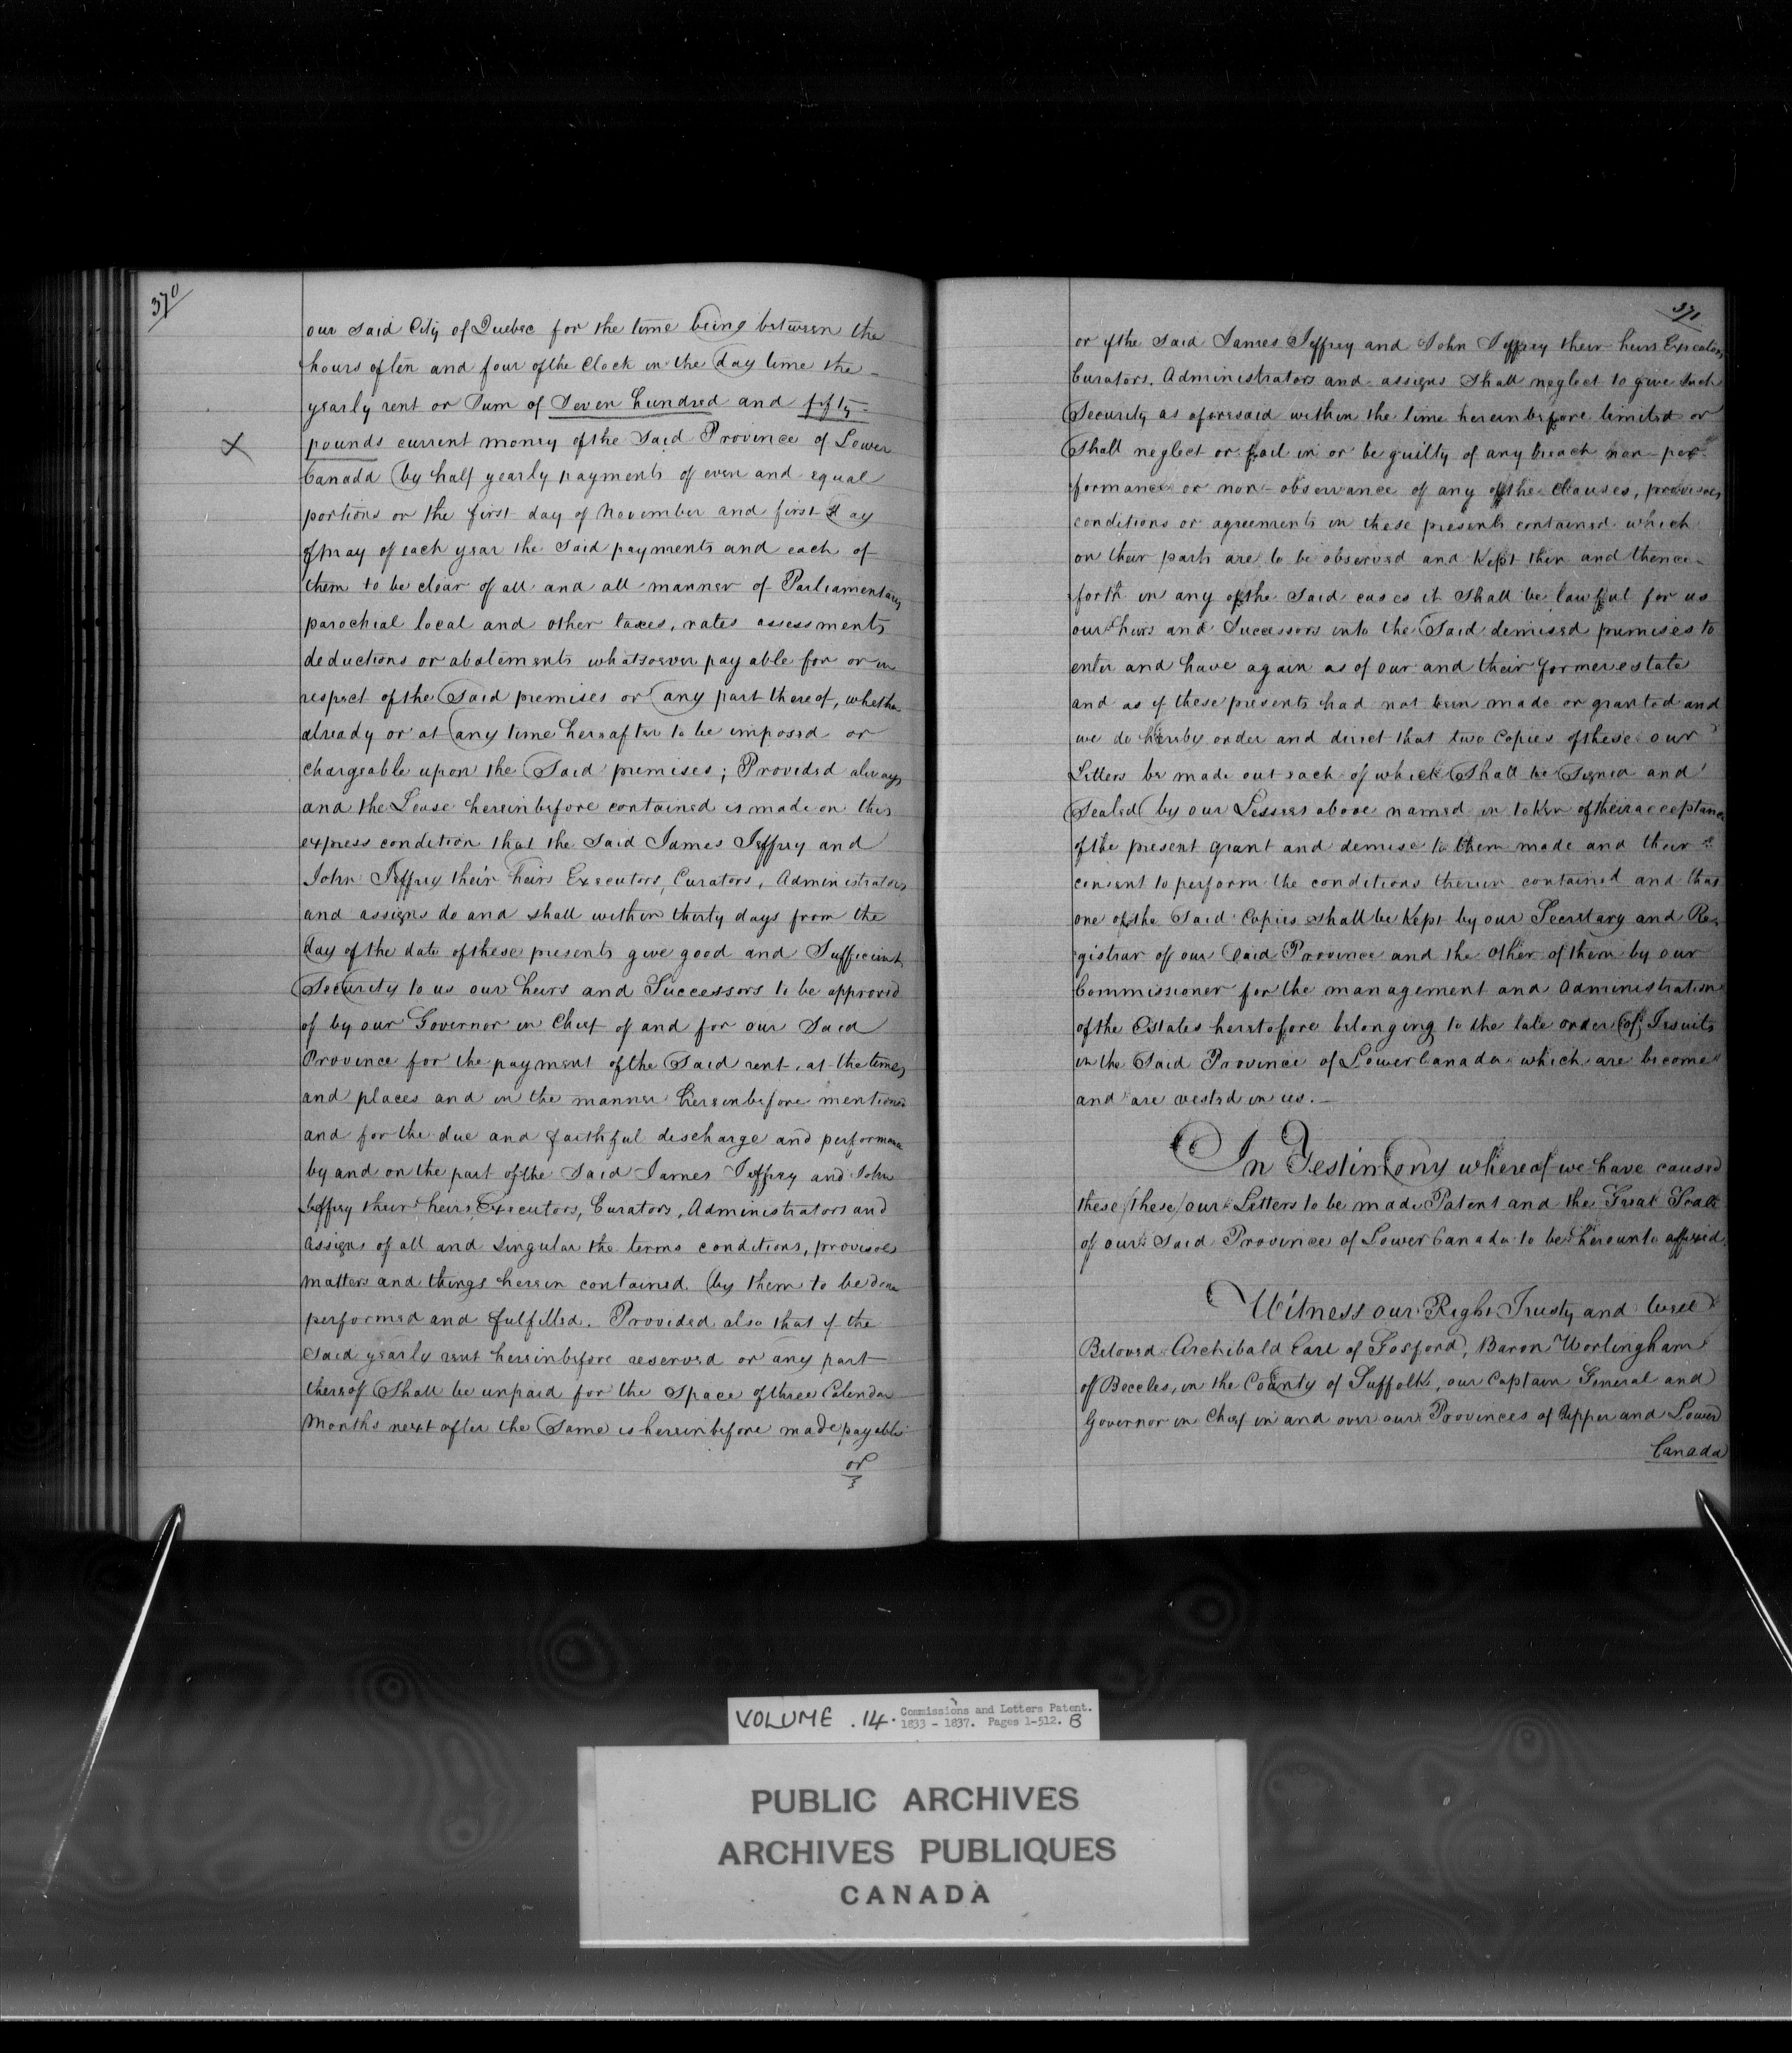 370
our said City of Quebec for the time being between the
hours of ten and four of the Clock in the day time the
yearly rent or Sum of Seven hundred and fifty
pounds current money of the Said Province of Lower
X
Canada by half yearly payments of even and equal
portions on the first day of November and first day
of May of each year the Said payments and each of
them to be clear of all and all manner of Parliamentary
parochial local and other taxes, rates assessments
deductions or abatements whatsoever payable for or in
respect of the Said premises or any part thereof, whether
already or at any time hereafter to be imposed or
chargeable upon the Said premises; Provided always
and the Lease hereinbefore contained is made on this
express condition that the Said James Jeffrey and
John Jeffrey their heirs Executors, Curators, Administrators
and assigns do and shall within thirty days from the
day of the date of these presents give good and Sufficient
Security to us our heirs and Successors to be approved
of by our Governor in Chief of and for our Said
Province for the payment of the Said rent, at the times
and places and in the manner hereinbefore mentioned
and for the due and faithful discharge and performance
by and on the part of the Said James Jeffrey and John
Jeffrey their heirs, Executors, Curators, Administrators and
Assigns of all and Singular the terms conditions, provisoes
matters and things herein contained. by them to be done
performed and fulfilled. Provided also that if the
Said yearly rent hereinbefore reserved or any part
thereof Shall be unpaid for the Space of three Calendar
Months next after the Same is hereinbefore made payable
or
371
or if the Said James Jeffrey and John Jeffrey their heirs Executors
Curators. Administrators and assigns Shall neglect to give Such
Security as aforesaid within the time hereinbefore limited or
Shall neglect or fail in or be guilty of any breach non-per-
formance or non-observance of any of the Clauses, provisoes
conditions or agreements in these presents contained which
on their parts are to be observed and Kept then and thence-
forth in any of the Said cases it Shall be lawful for us
our heirs and Successors into the Said demised premises to
enter and have again as of our and their former estate
and as if these presents had not been made or granted and
we do hereby order and direct that two Copies of these our
Letters be made out each of which Shall be Signed and
Sealed by our Lessees above named in token of their acceptance
of the present grant and demise to them made and their
consent to perform the conditions therein contained and that
one of the Said Copies Shall be Kept by our Secretary and Re-
gistrar of our Said Province and the other of them by our
Commissioner for the management and Administration
of the Estates heretofore belonging to the late order of Jesuits
in the Said Province of Lower Canada which are become
and are vested in us.—
In Testimony whereof we have caused
these (these) our Letters to be made Patent and the Great Seal
of our Said Province of Lower Canada to be hereunto affixed.
Witness our Right Trusty and Well
Beloved Archibald Earl of Gosford, Baron Worlingham
of Beccles, in the County of Suffolk, our Captain General and
Governor in Chief in and over our Provinces of Upper and Lower
Canada
VOLUME .14. Commissions and Letters Patent.
1833 - 1837. Pages 1-512. B
PUBLIC ARCHIVES
ARCHIVES PUBLIQUES
CANADA